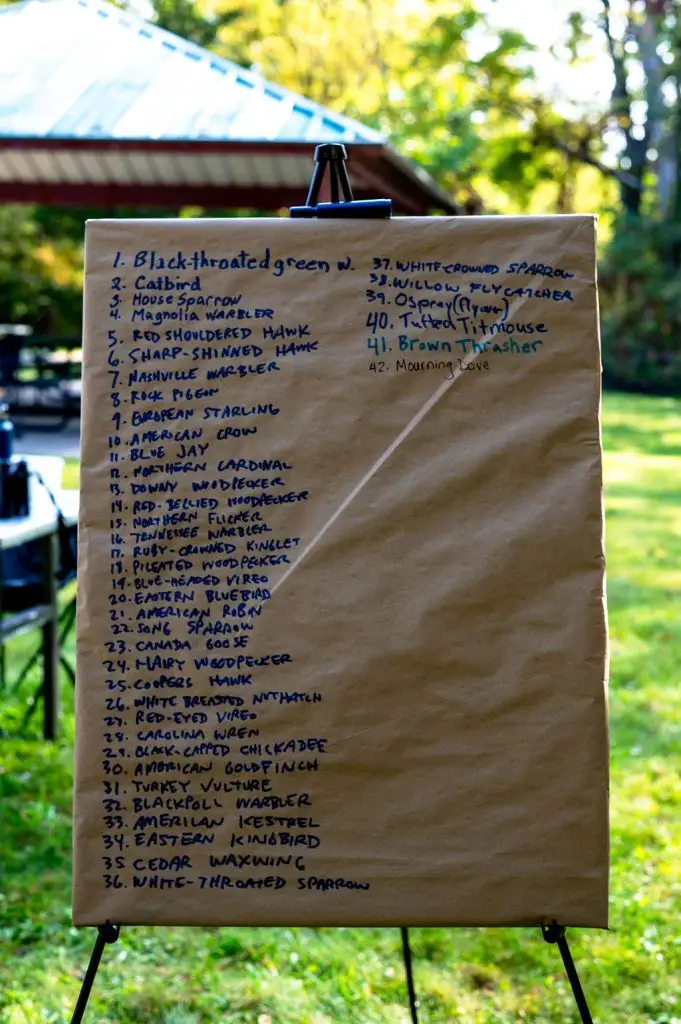 1. Black-throated green w.
2. Catbird
3. House Sparrow
4. Magnolia WARBLER
5. RED SHOULDERED HAWK
6. SHARP-SHINNED HAWK
7. NASHVILLE WARBLER
8. ROCK PIGEON
9. EUROPEAN STARLING
10. AMERICAN CROW
11. BLUE JAY
12. NORTHERN CARDINAL
13. DOWNY WOODPECKER
14. RED-BELLIED WOODPECKER
15. NORTHERN FLICKER
16. TENNESSEE WARBLER
17. RUBY-CROWNED KINGLET
18. PILEATED WOODPECKER
19. BLUE-HEADED VIREO
20. EASTERN BLUEBIRD
21. AMERICAN ROBIN
22. SONG SPARROW
23. CANADA GOOSE
24. HAIRY WOODPECKER
25. COOPERS HAWK
26. WHITE BREASTED NUTHATCH
27. RED-EYED VIREO
28. CAROLINA WREN
29. BLACK-CAPPED CHICKADEE
30. AMERICAN GOLDFINCH
31. TURKEY VULTURE
32. BLACKPOLL WARBLER
33. AMERICAN KESTREL
34. EASTERN KINGBIRD
35 CEDAR WAXWING
36. WHITE-THROATED SPARROW
37. WHITE-CROWNED SPARROW
38. WILLOW FLYCATCHER
39. Osprey (flyover)
40. Tufted Titmouse
41. Brown Thrasher
42. Mourning Dove